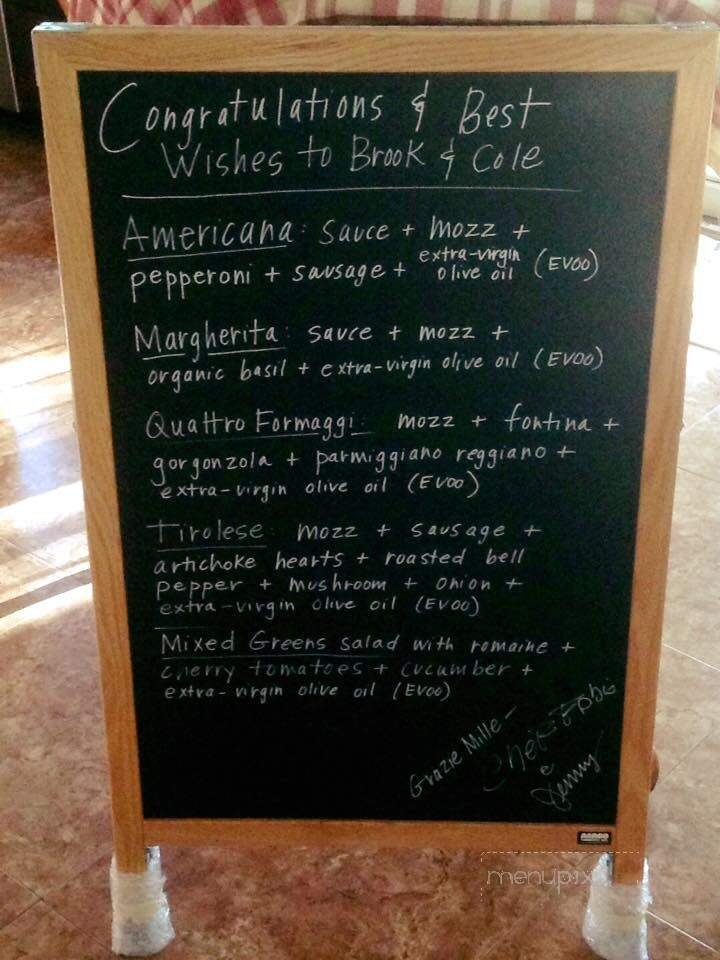 Congratulations & Best
Wishes to Brook & Cole
Americana: sauce + mozz +
pepperoni + sausage + extra-virgin olive oil (EVOO)
Margherita: sauce + mozz +
organic basil + extra-virgin olive oil (EVOO)
Quattro Formaggi: mozz + fontina +
gorgonzola + parmiggiano reggiano +
extra-virgin olive oil (EVOO)
Tirolese: mozz + sausage +
artichoke hearts + roasted bell
pepper + mushroom + onion +
extra-virgin olive oil (EVOO)
Mixed Greens salad with romaine +
cherry tomatoes + cucumber +
extra-virgin olive oil (EVOO)
Grazie Mille -
Chef
e
Jenny
AARCO
menupix